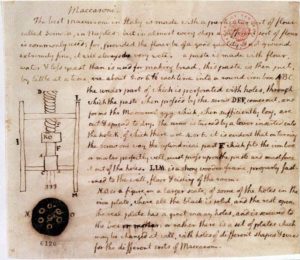 Maccaroni.
The best maccaroni in Italy is made with a particular sort of flour
called Semola, in Naples: but in almost every shop a different sort of flour
is commonly used; for, provided the flour be of a good quality, & not ground
extremely fine, it will always do very well. a paste is made with flour,
water & less yeast than is used for making bread. this paste is then put,
by little at a time, viz. about 5. or 6. lb each time into a round iron box ABC.
the under part of which is perforated with holes, through
which the paste, when pressed by the screw DEF, comes out, and
forms the Maccaroni g.g.g. which, when sufficiently long, are
cut & spread to dry. the screw is turned by a lever inserted into
the hole K, of which there are 4. or 6. it is evident that on turning
the screw one way, the cylindrical part F. which fits the iron box
or mortar perfectly well, must press upon the paste and must force it
out of the holes. LLM. is a strong wooden frame, properly fast
ened to the wall, floor & cieling of the room.
N.O. is a figure, on a larger scale, of some of the holes in the
iron plate, where all the black is solid, and the rest open.
the real plate has a great many holes, and is screwed to
the box or mortar: or rather there is a set of plates which
may be changed at will, with holes of different shapes & sizes
for the different sorts of Maccaroni.